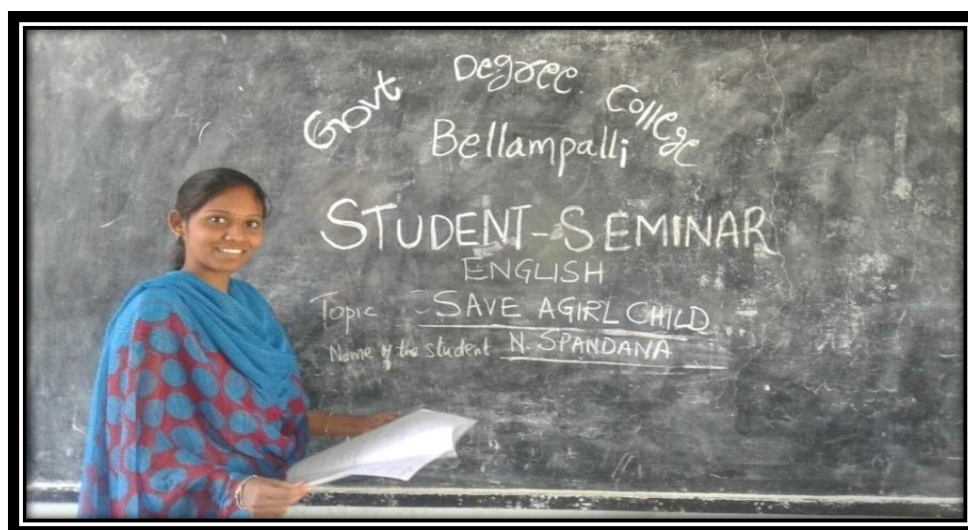 Govt Degree College
Bellampalli
STUDENT-SEMINAR
ENGLISH
Topic :- SAVE AGIRL CHILD
Name of the student N. SPANDANA